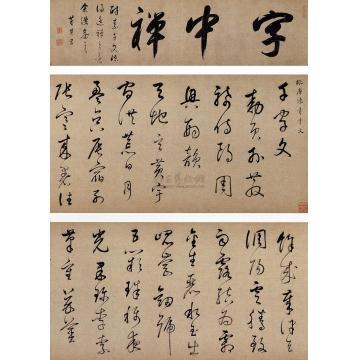 字中禪
千字文
勅員外散
騎侍郎周
興嗣韻
天地玄黃宇
宙洪荒日月
盈昃辰宿列
張寒來暑往
餘成歲律呂
調陽雲騰致
雨露結為霜
金生麗水玉出
崑岡劍號
巨闕珠稱夜
光果珍李柰
菜重芥薑